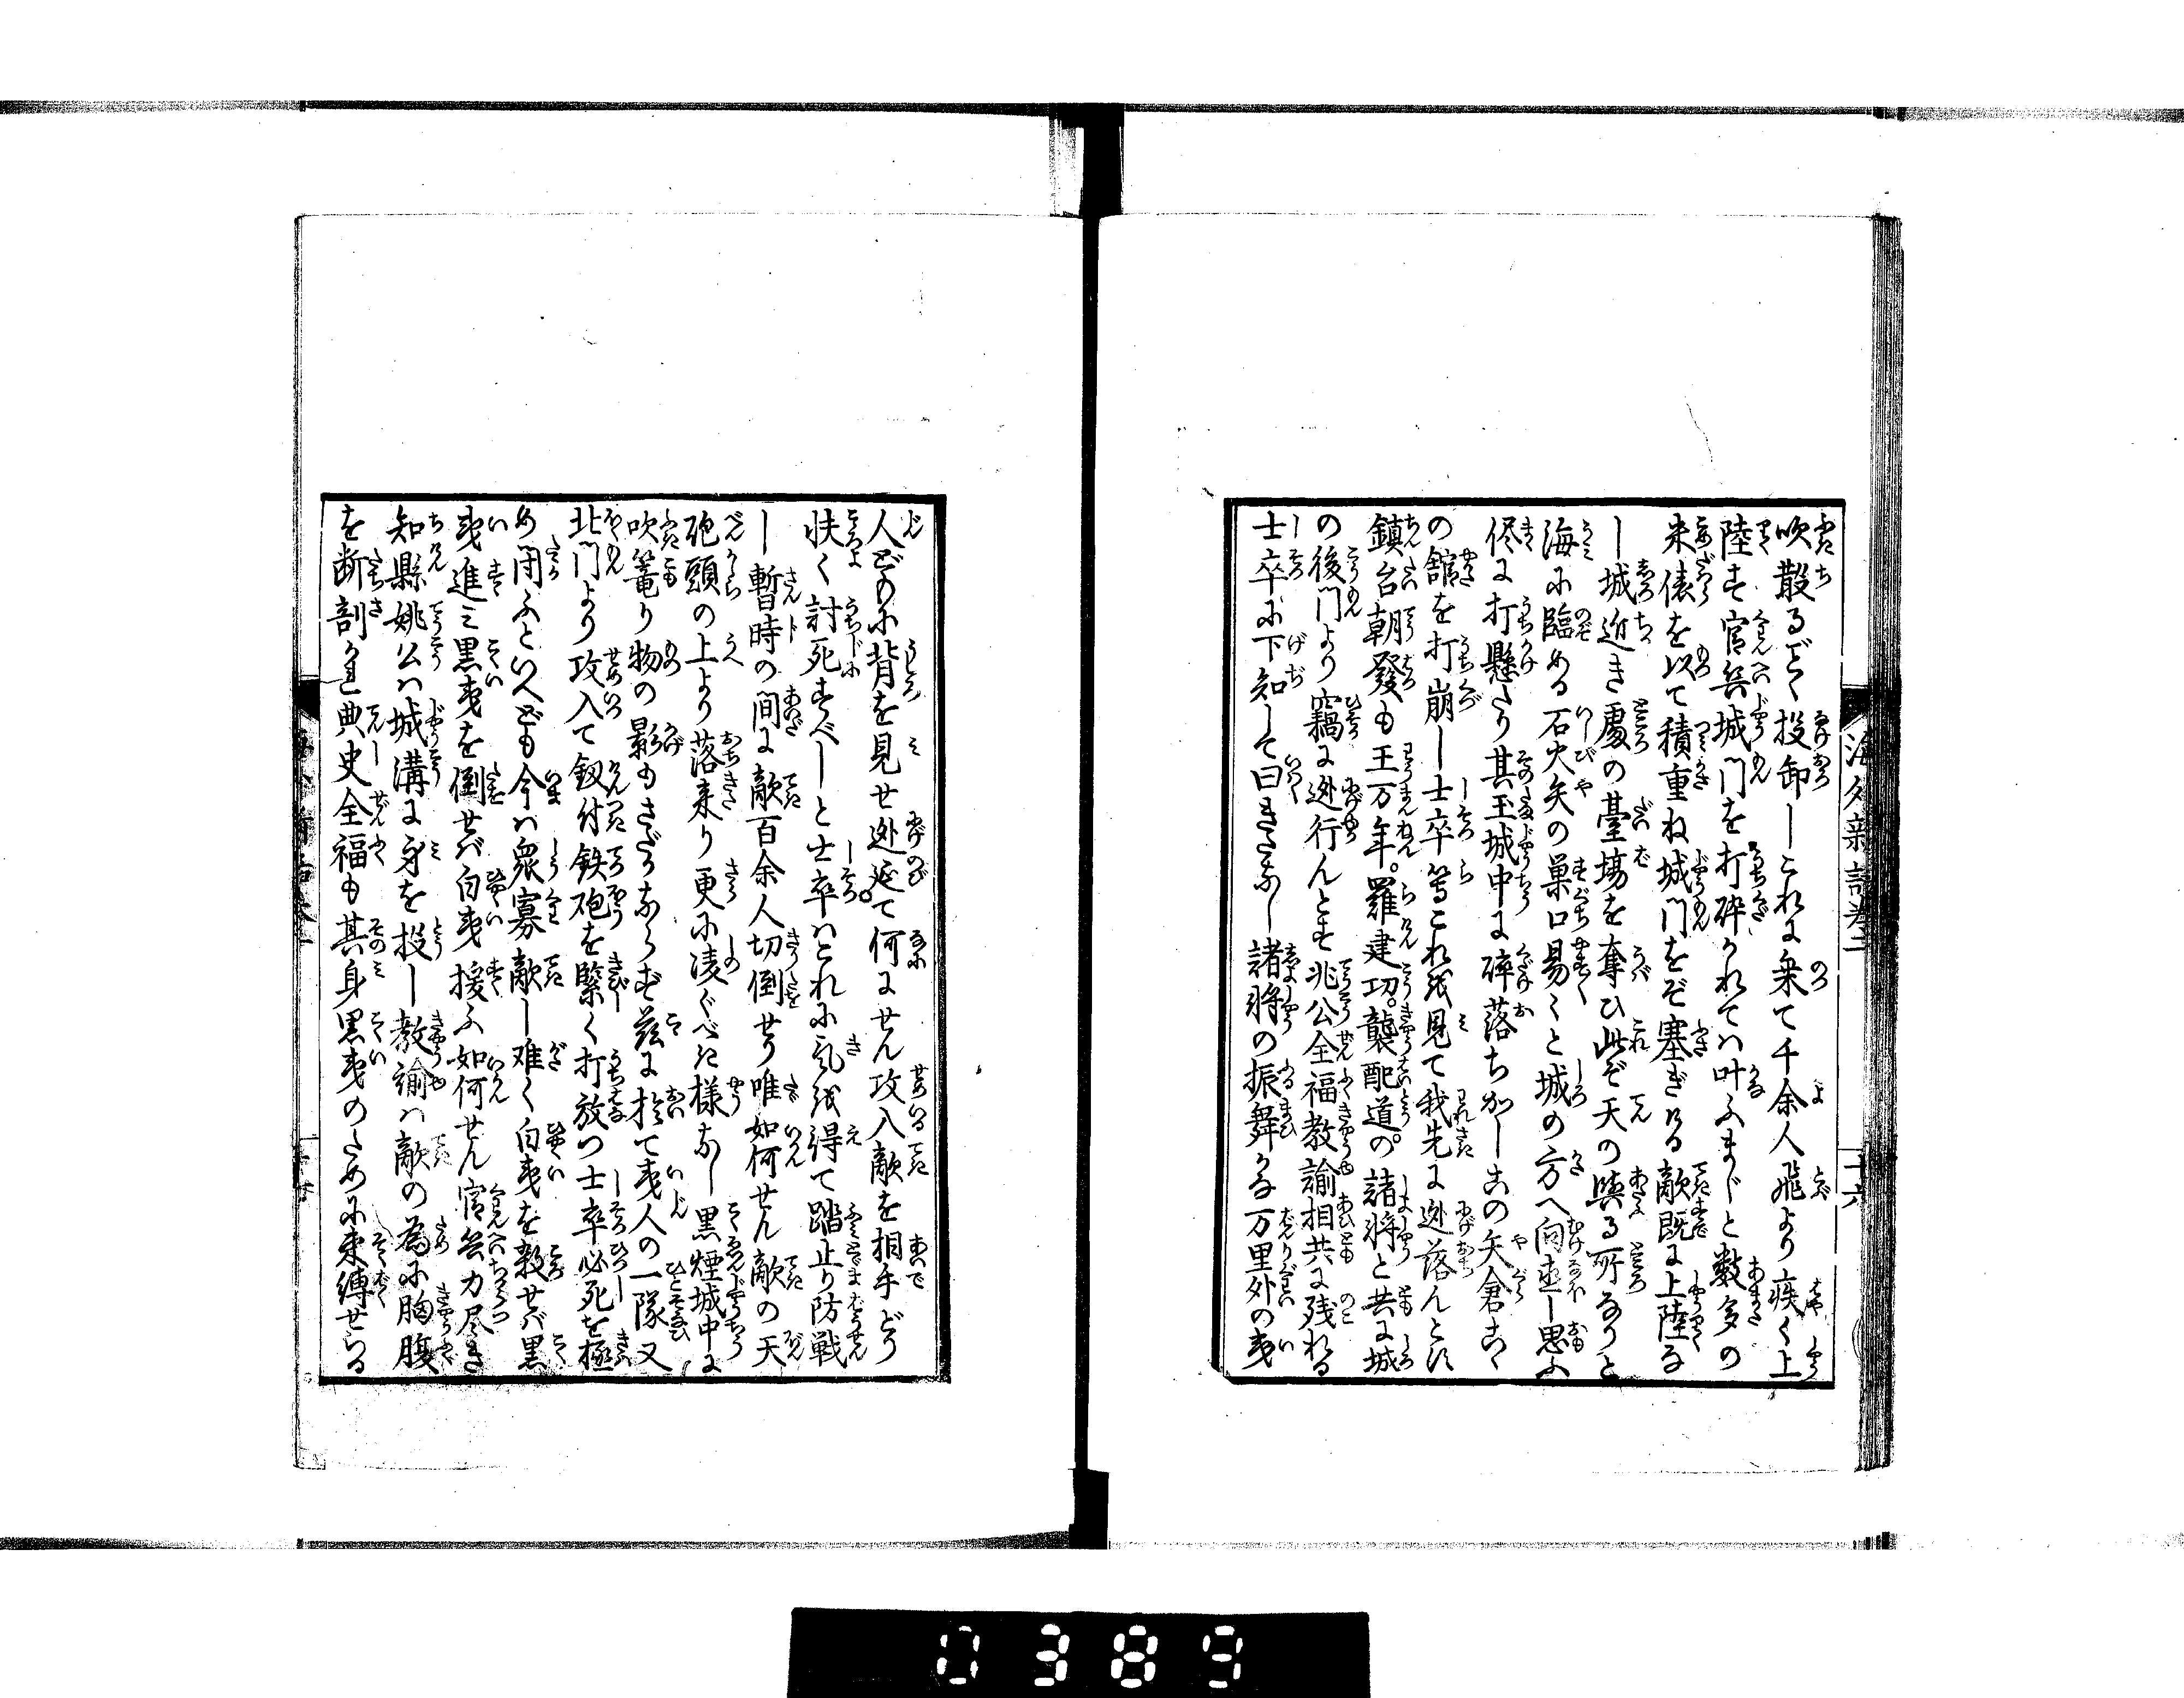 吹散るごく投卸しこれに乗て千余人飛より疾く上
陸す官兵城門を打砕かれてハ叶ふまじと数多の
米俵を以て積重ね城門をぞ塞ぎける敵既に上陸な
し城近き處の臺場を奪ひ此ぞ天の與る所なりと
海に臨める石火矢の巣口易〻と城の方へ向直し思ふ
侭に打懸たり其玉城中に砕落ちかしこの矢倉こゝ
の舘を打崩し士卒等これを見て我先に迯落んとす
鎮台朝發も王万年。羅建功。龔配道の。諸将と共に城
の後門より竊に迯行んとす兆公全福教諭相共に残れる
士卒に下知して曰きたなし諸将の振舞かな万里外の夷
海外新話巻二
十六
人どもに背を見せ迯延て何にせん攻入敵を相手どり
快く討死すべしと士卒ハこれに気を得て踏止り防戦
し暫時の間に敵百余人切倒せり唯如何せん敵の天
砲頭の上より落来り更に凌ぐべき様なし黒煙城中に
吹篭り物の影もさだかならず茲に於て夷人の一隊又
北門より攻入て釼付鉄砲を緊く打放つ士卒必死を極
め闘ふといへども今ハ衆寡敵し难く白夷を殺せバ黒
夷進ミ黒夷を倒せバ白夷援ふ如何せん官兵力尽き
知縣姚公ハ城溝に身を投し教諭ハ敵の為に胸腹
を断剖れ典史全福も其身黒夷のために束縛せらる
0389